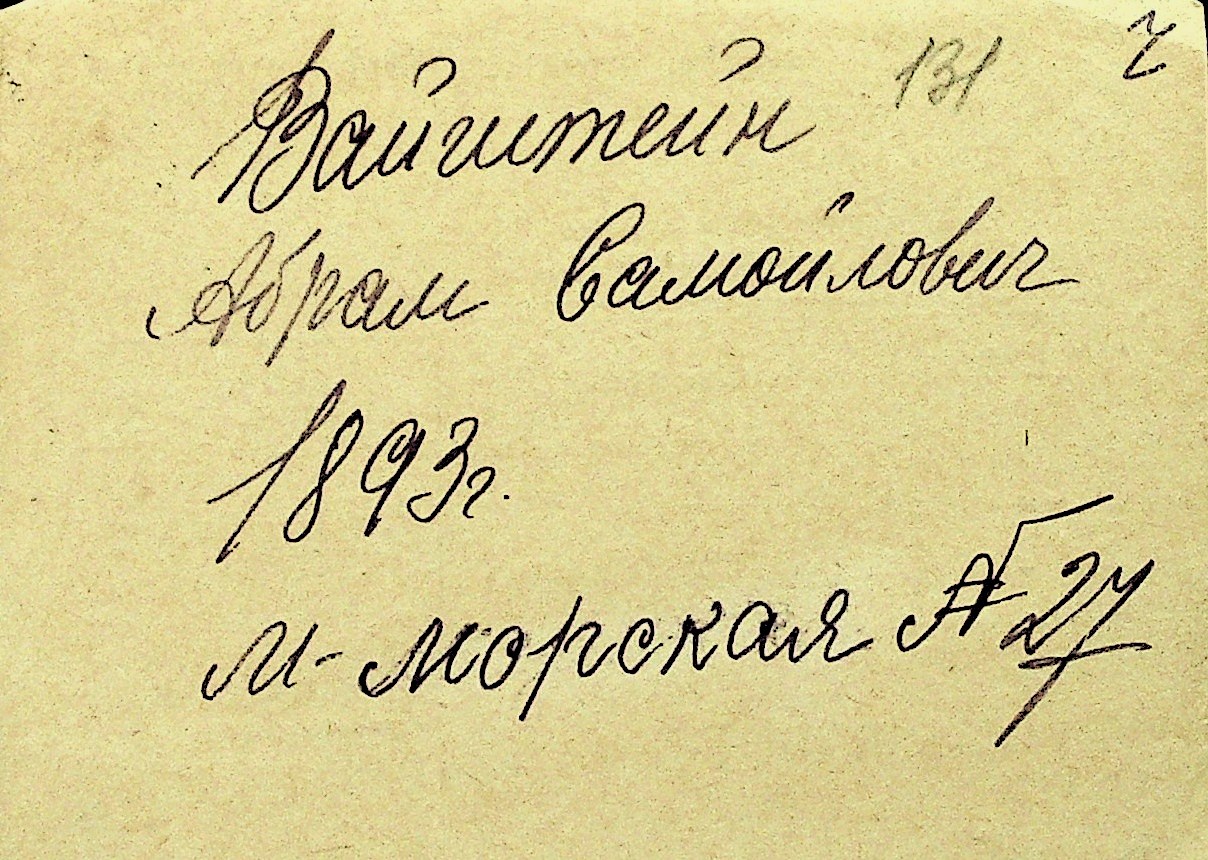 131 ч
Вайнштейн
Абрам Самойлович
1893г.
М-Морская № 27